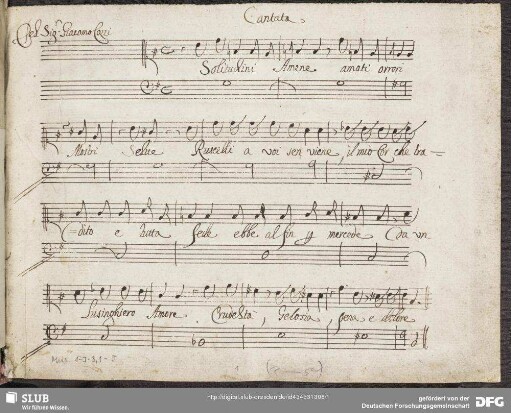 Cantata
Del Sig.r Giacomo
Solitudini Amene amati orrori
Mostri Selve Ruscelli a voi sen viene, il mio Cor che tra=
dito e tutta fede ebbe al fin p mercede da un
Lusinghiero Amore Crudeltà, Gelosia, pena e dolore
Mus. 1-J-3,1
SLUB
Wir führen Wissen.
gefördert von der
Deutschen Forschungsgemeinschaft
DFG